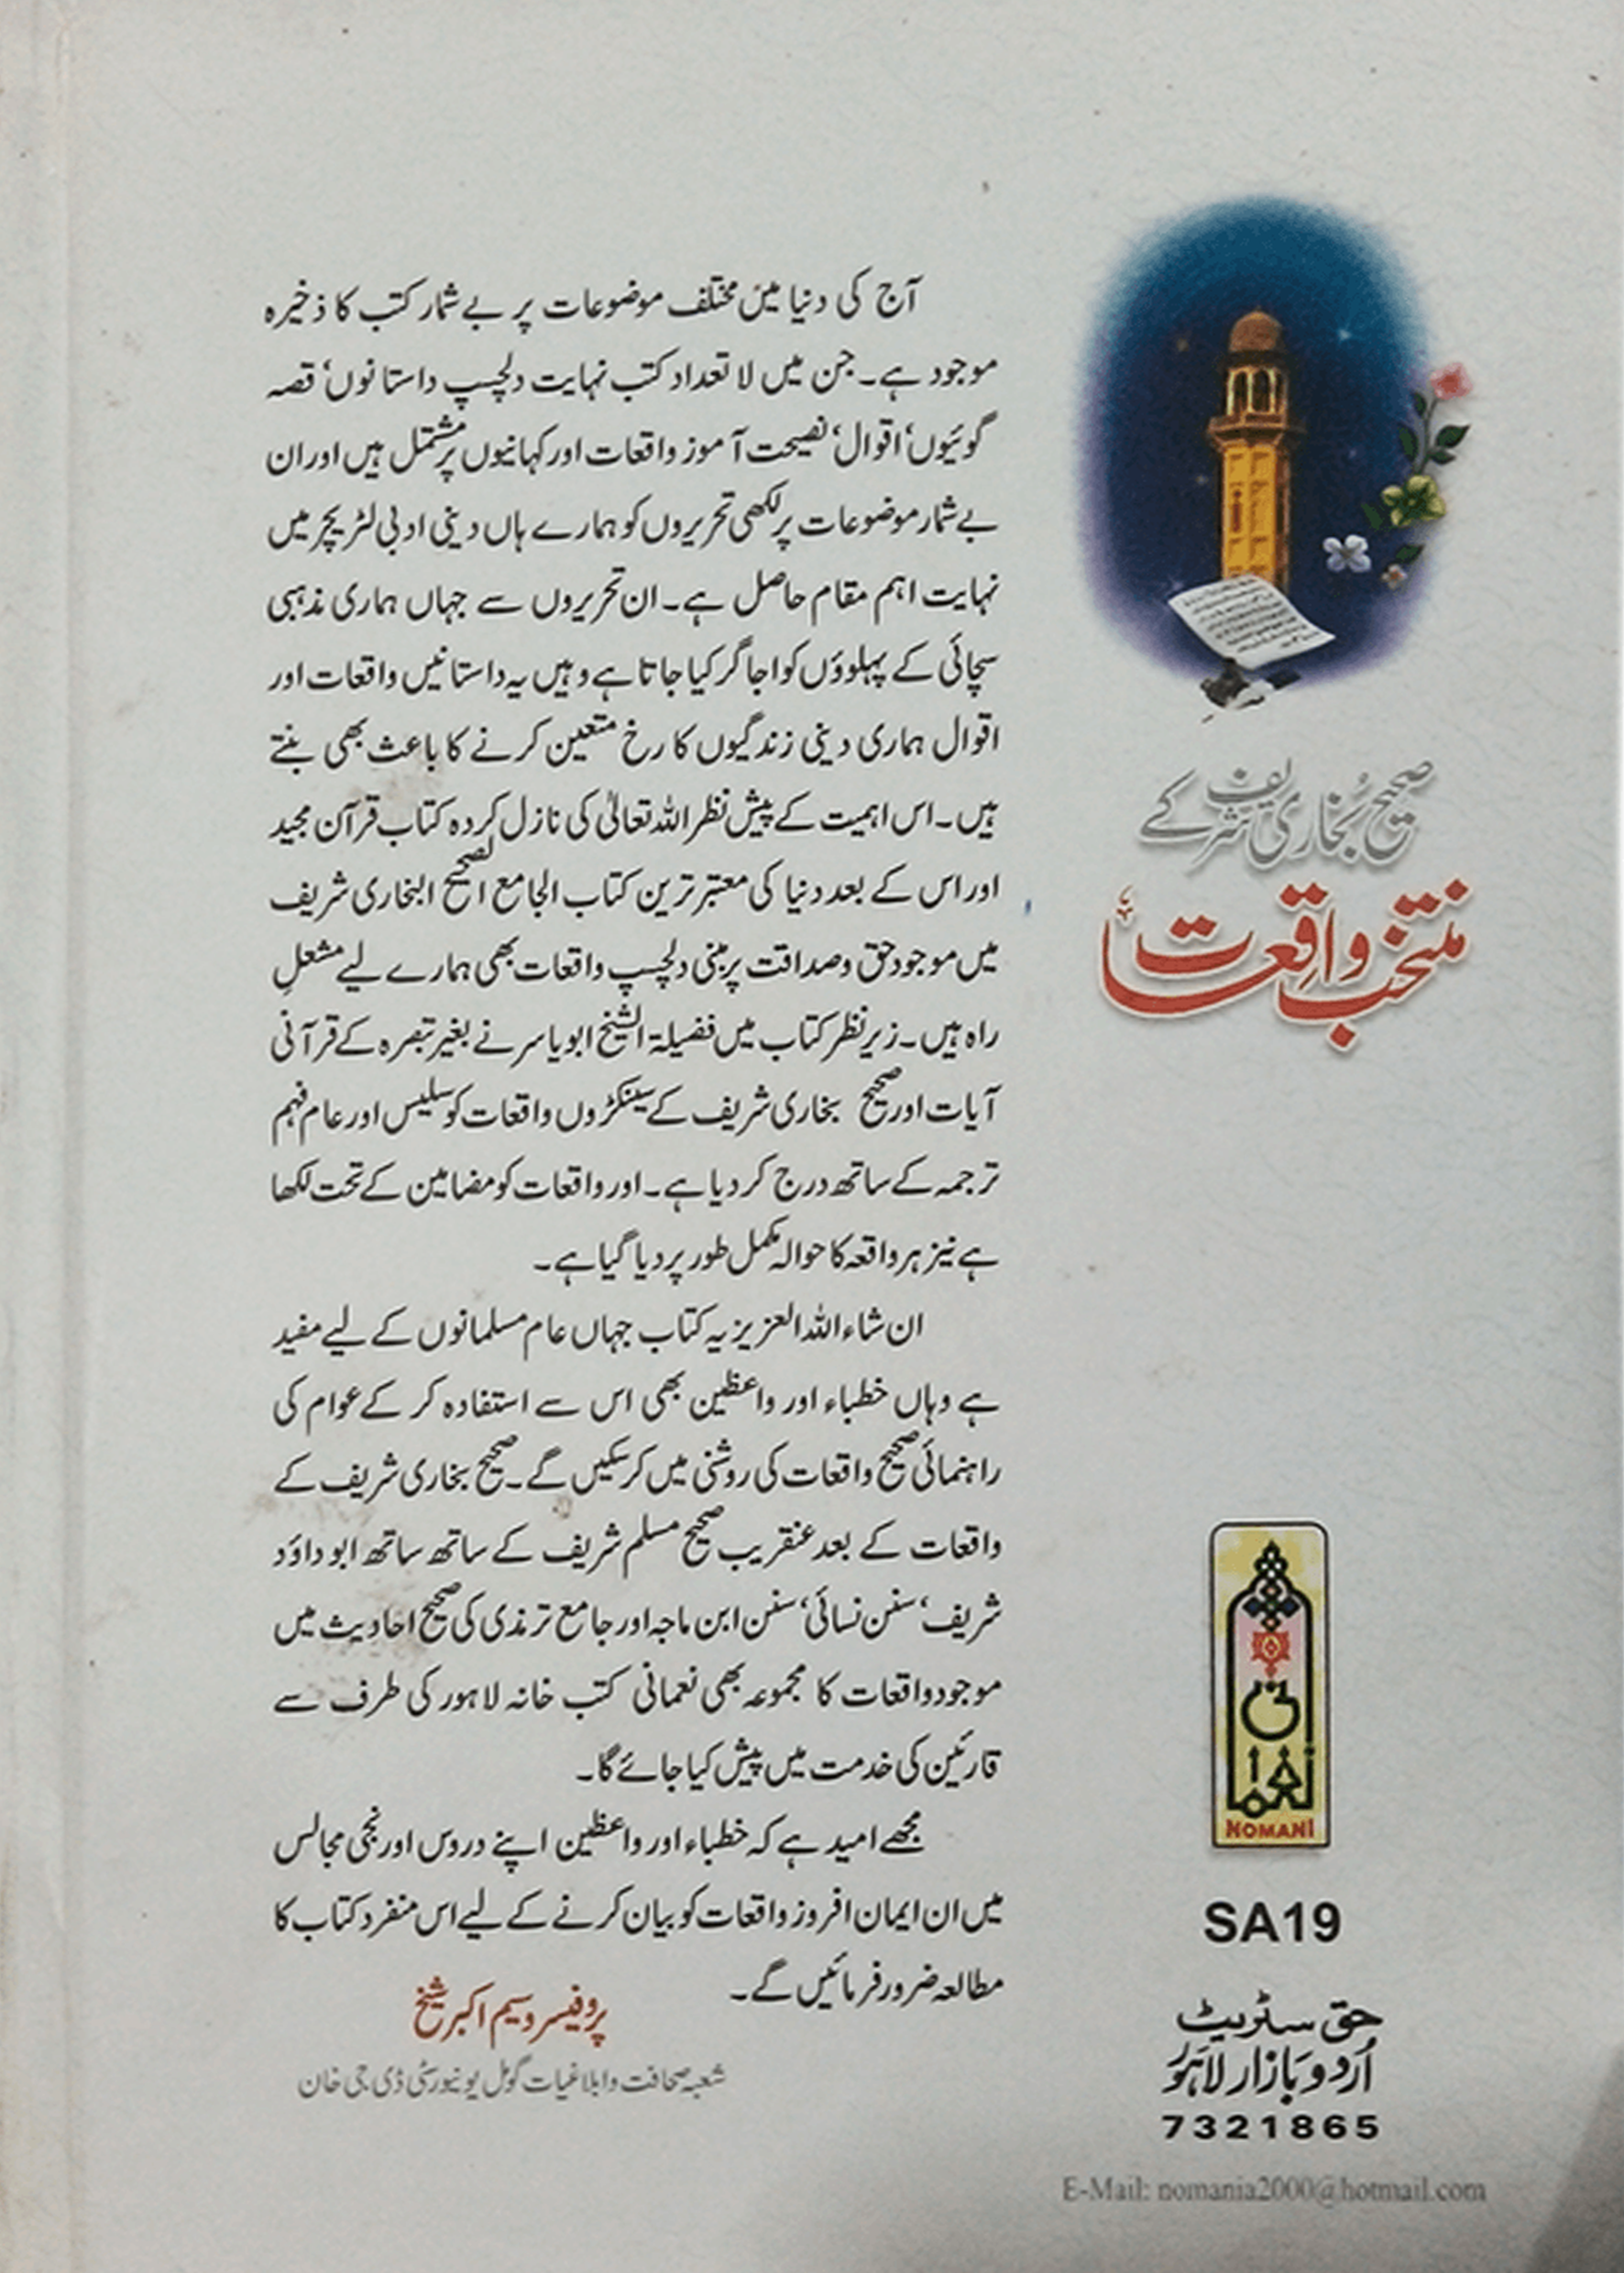 آج کی دنیا میں مختلف موضوعات پر بے شمار کتب کا ذخیرہ
موجود ہے۔ جن میں لا تعداد کتب نہایت دلچسپ داستانوں‘ قصہ
گوئیوں‘ اقوال‘ نصیحت آموز واقعات اور کہانیوں پر مشتمل ہیں اور ان
بے شمار موضوعات پر لکھی تحریروں کو ہمارے ہاں دینی ادبی لٹریچر میں
نہایت اہم مقام حاصل ہے۔ ان تحریروں سے جہاں ہماری مذہبی
سچائی کے پہلوؤں کو اجاگر کیا جاتا ہے وہیں یہ داستانیں واقعات اور
اقوال ہماری دینی زندگیوں کا رخ متعین کرنے کا باعث بھی بنتے
ہیں۔ اس اہمیت کے پیش نظر اللہ تعالیٰ کی نازل کردہ کتاب قرآن مجید
اور اس کے بعد دنیا کی معتبر ترین کتاب الجامع الصحیح البخاری شریف
میں موجود حق و صداقت پر مبنی دلچسپ واقعات بھی ہمارے لیے مشعلِ
راہ ہیں۔ زیر نظر کتاب میں فضیلۃ الشیخ ابو یاسر نے بغیر تبصرہ کے قرآنی
آیات اور صحیح بخاری شریف کے سینکڑوں واقعات کو سلیس اور عام فہم
ترجمہ کے ساتھ درج کر دیا ہے۔ اور واقعات کو مضامین کے تحت لکھا
ہے نیز ہر واقعہ کا حوالہ مکمل طور پر دیا گیا ہے۔
ان شاء اللہ العزیز یہ کتاب جہاں عام مسلمانوں کے لیے مفید
ہے وہاں خطباء اور واعظین بھی اس سے استفادہ کر کے عوام کی
راہنمائی صحیح واقعات کی روشنی میں کر سکیں گے۔ صحیح بخاری شریف کے
واقعات کے بعد عنقریب صحیح مسلم شریف کے ساتھ ساتھ ابو داؤد
شریف‘ سنن نسائی‘ سنن ابن ماجہ اور جامع ترمذی کی صحیح احادیث میں
موجود واقعات کا مجموعہ بھی نعمانی کتب خانہ لاہور کی طرف سے
قارئین کی خدمت میں پیش کیا جائے گا۔
مجھے امید ہے کہ خطباء اور واعظین اپنے دروس اور نجی مجالس
میں ان ایمان افروز واقعات کو بیان کرنے کے لیے اس منفرد کتاب کا
مطالعہ ضرور فرمائیں گے۔
پروفیسر وسیم اکبر شیخ
شعبہ صحافت و ابلاغیات گومل یونیورسٹی ڈی جی خان
صحیح بُخاری شریف کے
منتخب واقِعات
نعمانی
NOMANI
SA19
حق سٹریٹ
اُردو بازار لاہور
7321865
E-Mail: nomania2000@hotmail.com